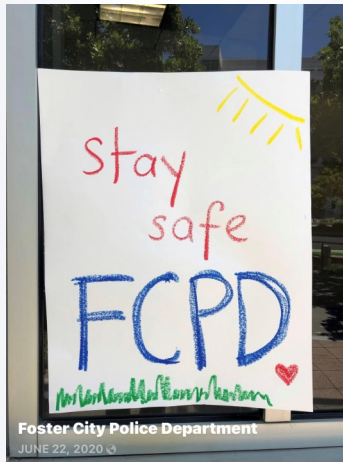 stay
safe
FCPD
Foster City Police Department
JUNE 22, 2020